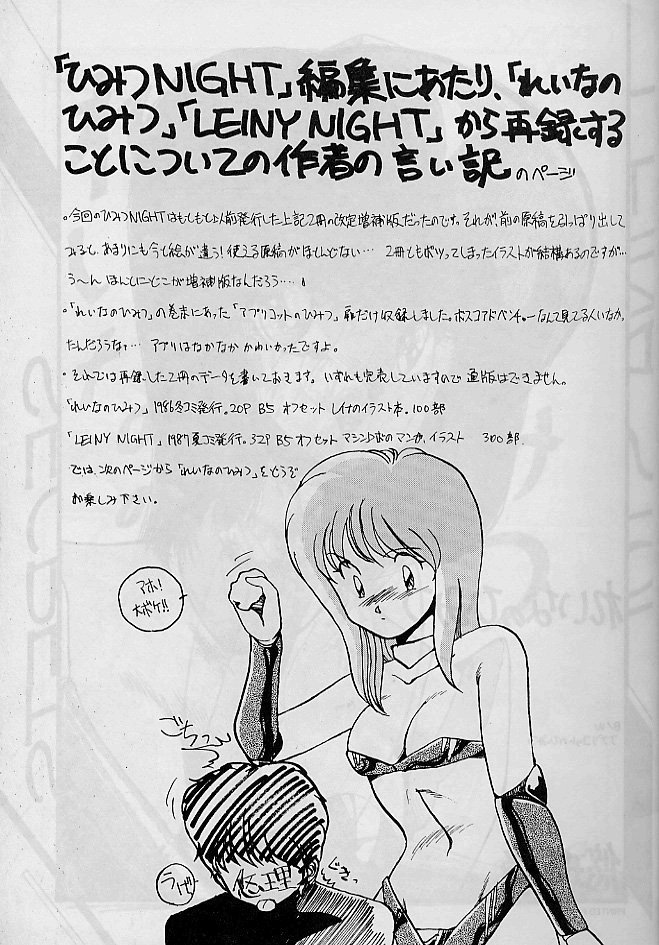 「ひみつNIGHT」編集にあたり、「れいなの
ひみつ」「LEINY NIGHT」から再録する
ことについての作者の言い訳のページ
・今回のひみつNIGHTはもともと以前発行した上記2冊の改定増補版だったのです。それが前の原稿を引っぱり出して
みると、あまりにも今と絵が違う!使える原稿がほとんどない… 2冊ともボツってしまったイラストが結構あるのですが…
う〜ん ほんとにどこが増補版なんだろう…。
・「れいなのひみつ」の巻末にあった「アプリコットのひみつ」扉だけ収録しました。ボスコアドベンチャーなんて見てる人いなか
たんだろうなァ… アプリはなかなかかわいかったですよ。
・それでは再録した2冊のデータを書いておきます。いずれも完売していますので通販はできません。
「れいなのひみつ」1986冬コミ発行。20P B5 オフセット レイナのイラスト本。100部
「LEINY NIGHT」1987夏コミ発行。32P B5 オフセット マシンロボのマンガ、イラスト 300部
では、次のページから「れいなのひみつ」をどうぞ
お楽しみ下さい。
アホ!
大ボケ!!
ごちっ
うげ
悠理
ぐきっ
れいなのひみつ